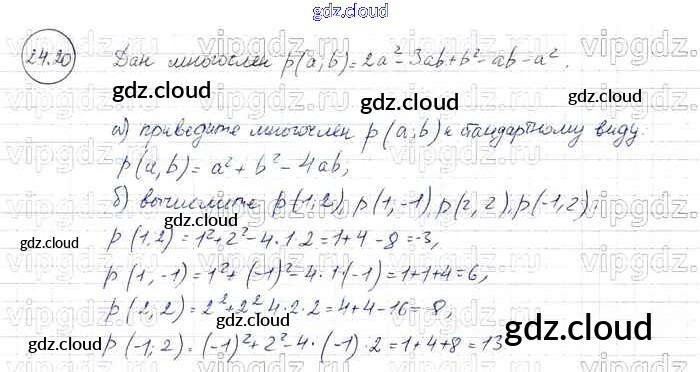 gdz.cloud
24.20 Дан многочлен p(a;b)=2a²-3ab+b²-ab-a².
gdz.cloud
а) приведите многочлен p(a;b) к стандартному виду.
p(a,b)=a²+b²-4ab,
б) вычислите p(1;2), p(1,-1), p(2,2), p(-1,2).
gdz.cloud gdz.cloud
p(1,2)=1²+2²-4·1·2=1+4-8=-3,
gdz.cloud
p(1,-1)=1²+(-1)²-4·1·(-1)=1+1+4=6,
p(2,2)=2²+2²4·2·2=4+4-16=-8,
gdz.cloud gdz.cloud
p(-1;2)=(-1)²+2²-4·(-1)·2=1+4+8=13
gdz.cloud